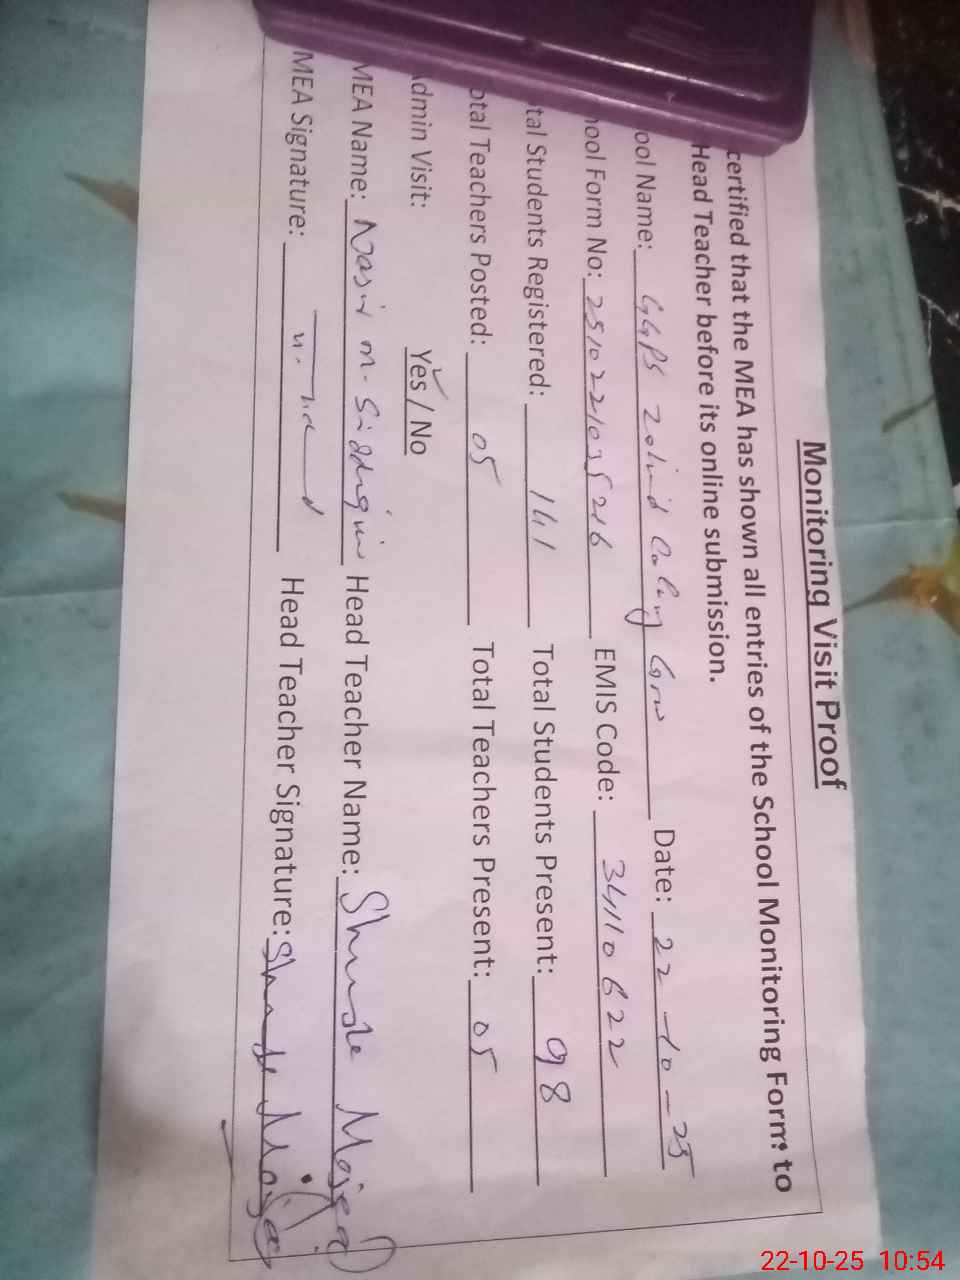 Monitoring Visit Proof
certified that the MEA has shown all entries of the School Monitoring Form to
Head Teacher before its online submission.
ool Name: GGPS Colony Date: 22-10-25
ool Form No: 2510221035216 EMIS Code: 34110622
tal Students Registered: 141 Total Students Present: 98
otal Teachers Posted: 05 Total Teachers Present: 05
dmin Visit: Yes / No
MEA Name: Nasir M. Siddiqui Head Teacher Name: Majeed
MEA Signature: Head Teacher Signature:
22-10-25 10:54